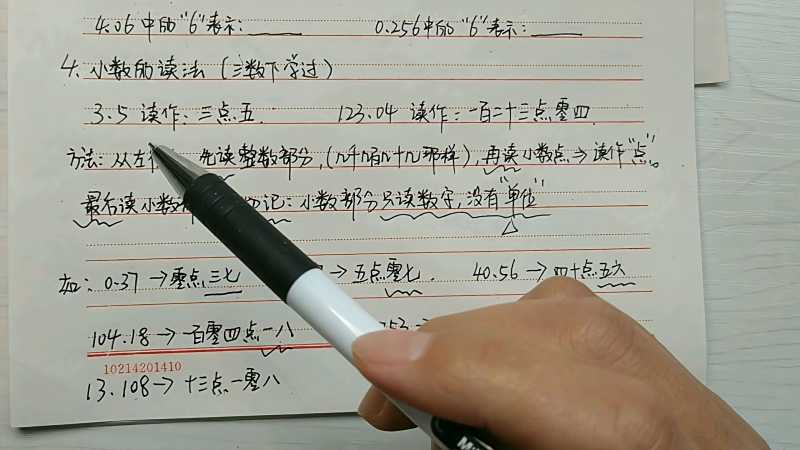 4.06中的"6"表示: 0.256中的"6"表示:
4. 小数的读法 (三数下学过)
3.5 读作: 三点五. 123.04 读作: 一百二十三点零四.
方法: 从左 先读整数部分, (几千几百几十几那样), 再读小数点→读作"点".
最后读小数 切记: 小数部分只读数字, 没有"单位"
如: 0.37→零点三七 →五点零七. 40.56→四十点五六
104.18→一百零四点一八 253
10214201410
13.108→十三点一零八